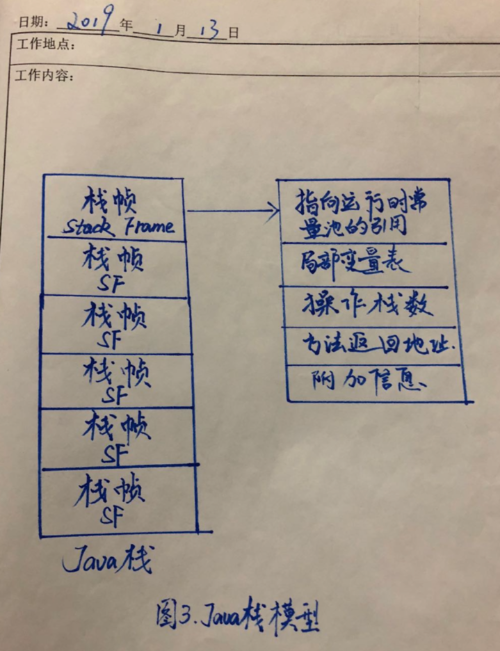 日期: 2019 年 1 月 13 日
工作地点:
工作内容:
栈帧
Stack Frame
栈帧
SF
栈帧
SF
栈帧
SF
栈帧
SF
栈帧
SF
Java栈
指向运行时常
量池的引用
局部变量表
操作栈数
方法返回地址.
附加信息
图3.Java栈模型